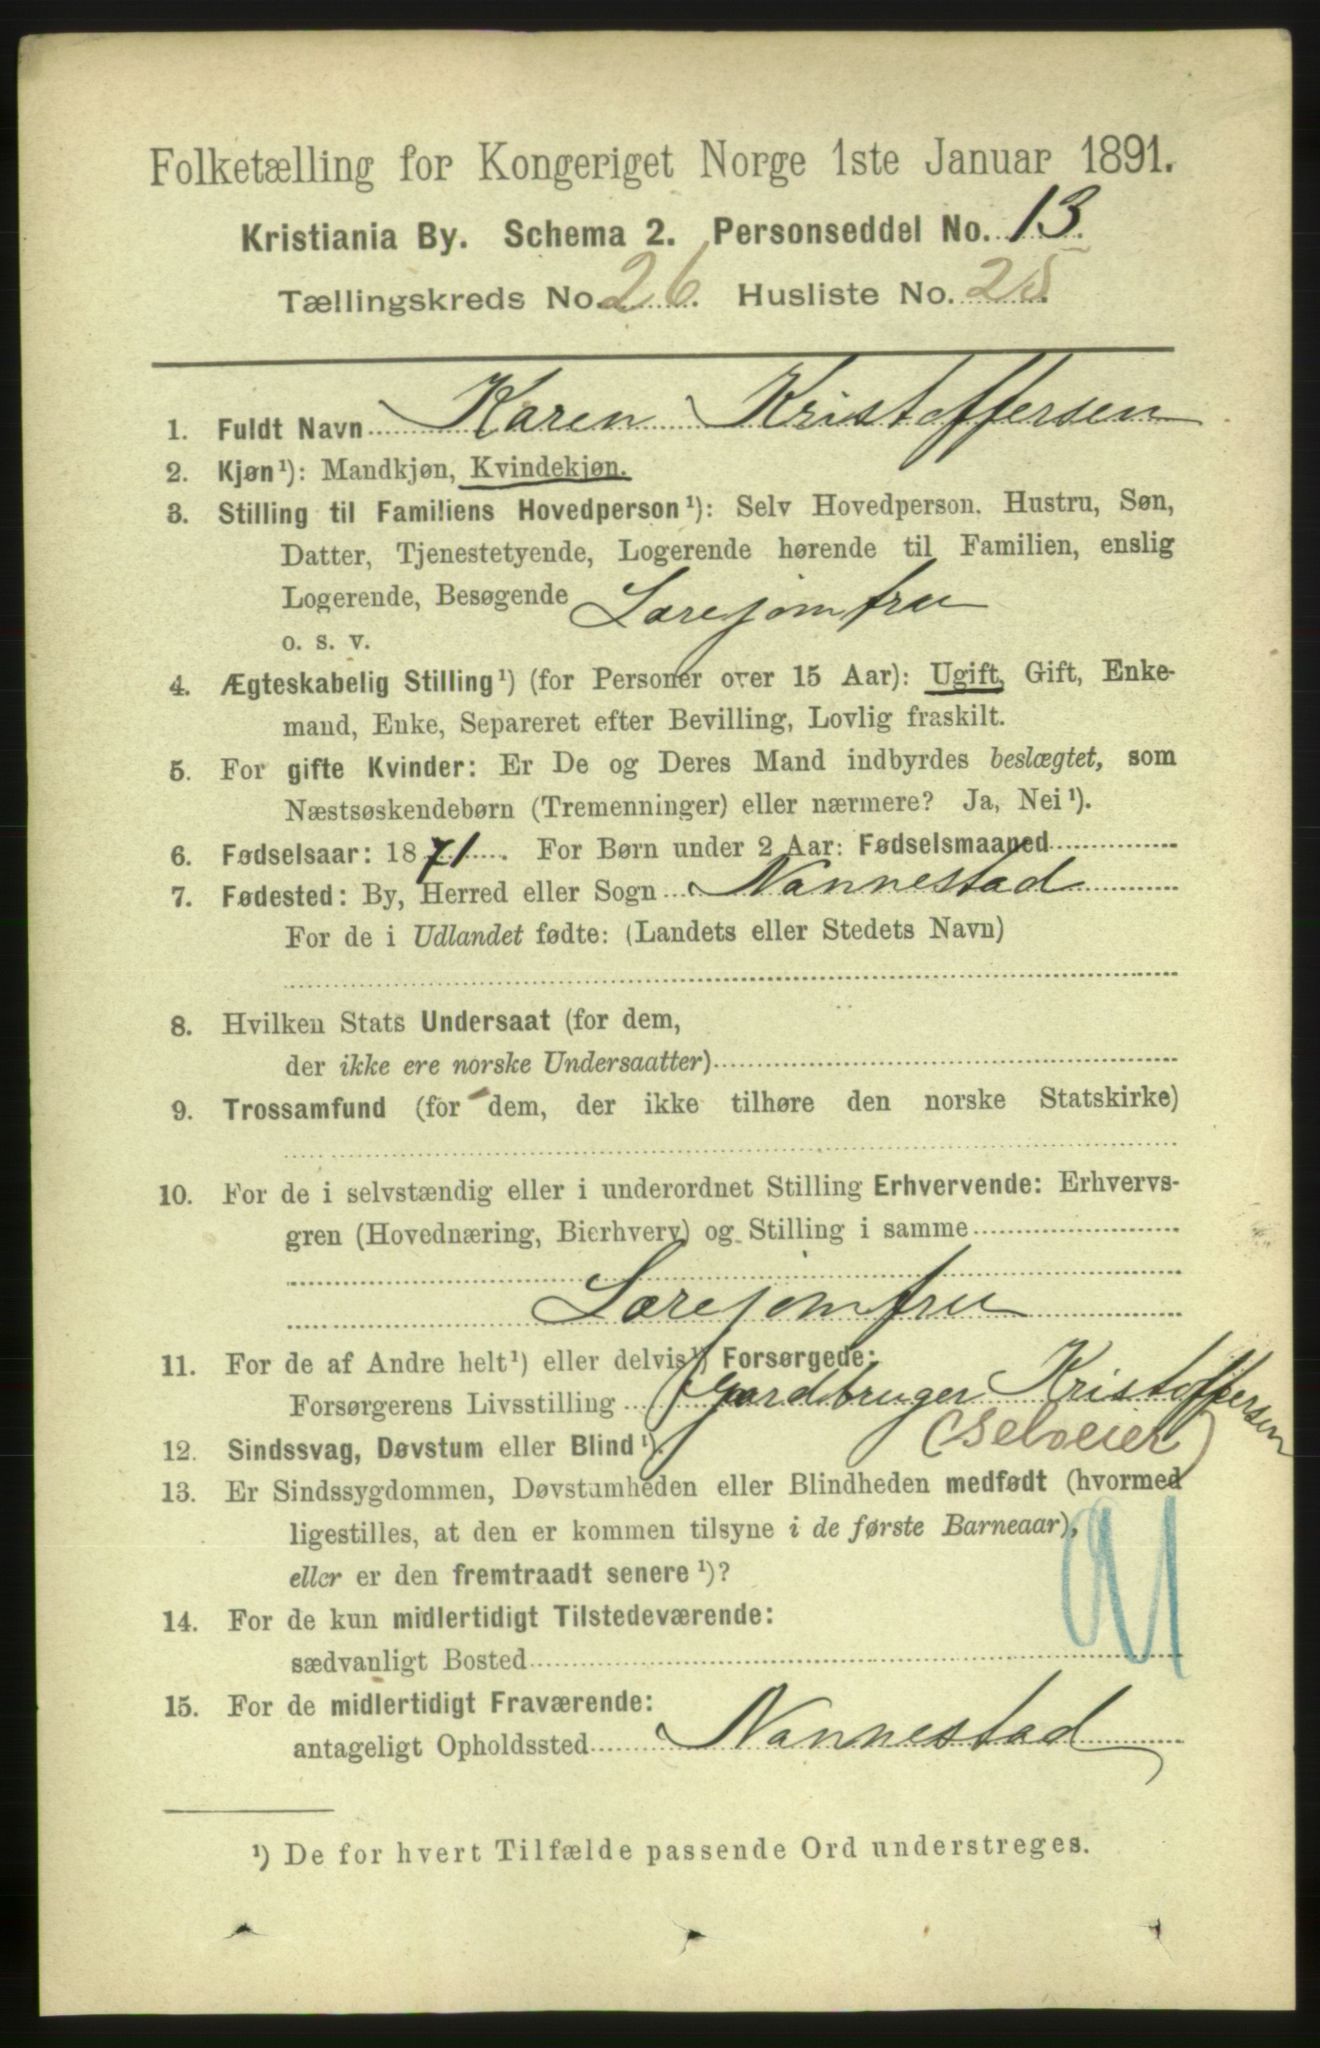 Folketælling for Kongeriget Norge 1ste Januar 1891.
Kristiania By. Schema 2. Personseddel No. 13.
Tællingskreds No. 26. Husliste No. 25.
1. Fuldt Navn Karen Kristoffersen
2. Kjøn¹): Mandkjøn, Kvindekjøn.
3. Stilling til Familiens Hovedperson¹): Selv Hovedperson. Hustru, Søn,
Datter, Tjenestetyende, Logerende hørende til Familien, enslig
Logerende, Besøgende Lærejomfru
o. s. v.
4. Ægteskabelig Stilling¹) (for Personer over 15 Aar): Ugift, Gift, Enke-
mand, Enke, Separeret efter Bevilling, Lovlig fraskilt.
5. For gifte Kvinder: Er De og Deres Mand indbyrdes beslægtet, som
Næstsøskendebørn (Tremenninger) eller nærmere? Ja, Nei¹).
6. Fødselsaar: 1871. For Børn under 2 Aar: Fødselsmaaned
7. Fødested: By, Herred eller Sogn Nannestad
For de i Udlandet fødte: (Landets eller Stedets Navn)
8. Hvilken Stats Undersaat (for dem,
der ikke ere norske Undersaatter)
9. Trossamfund (for dem, der ikke tilhøre den norske Statskirke)
10. For de i selvstændig eller i underordnet Stilling Erhvervende: Erhvervs-
gren (Hovednæring, Bierhverv) og Stilling i samme
Lærejomfru
11. For de af Andre helt¹) eller delvis¹) Forsørgede:
Forsørgerens Livsstilling Gardbruger Kristoffersen
(Selveier)
12. Sindssvag, Døvstum eller Blind¹).
13. Er Sindssygdommen, Døvstumheden eller Blindheden medfødt (hvormed
ligestilles, at den er kommen tilsyne i de første Barneaar),
eller er den fremtraadt senere¹)?
14. For de kun midlertidigt Tilstedeværende:
sædvanligt Bosted
15. For de midlertidigt Fraværende:
antageligt Opholdssted Nannestad
¹) De for hvert Tilfælde passende Ord understreges.